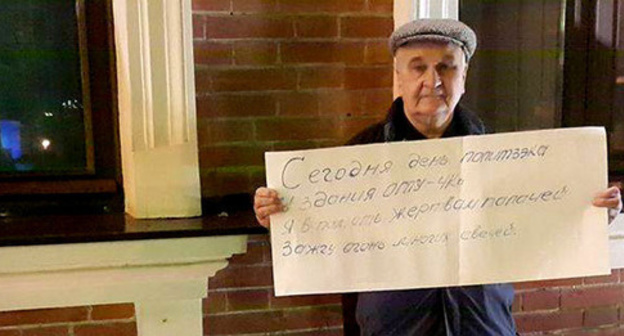 Сегодня день политзэка
У здания ОГПУ-ЧК.
Я в память жертвам палачей
Зажгу огонь многих свечей.